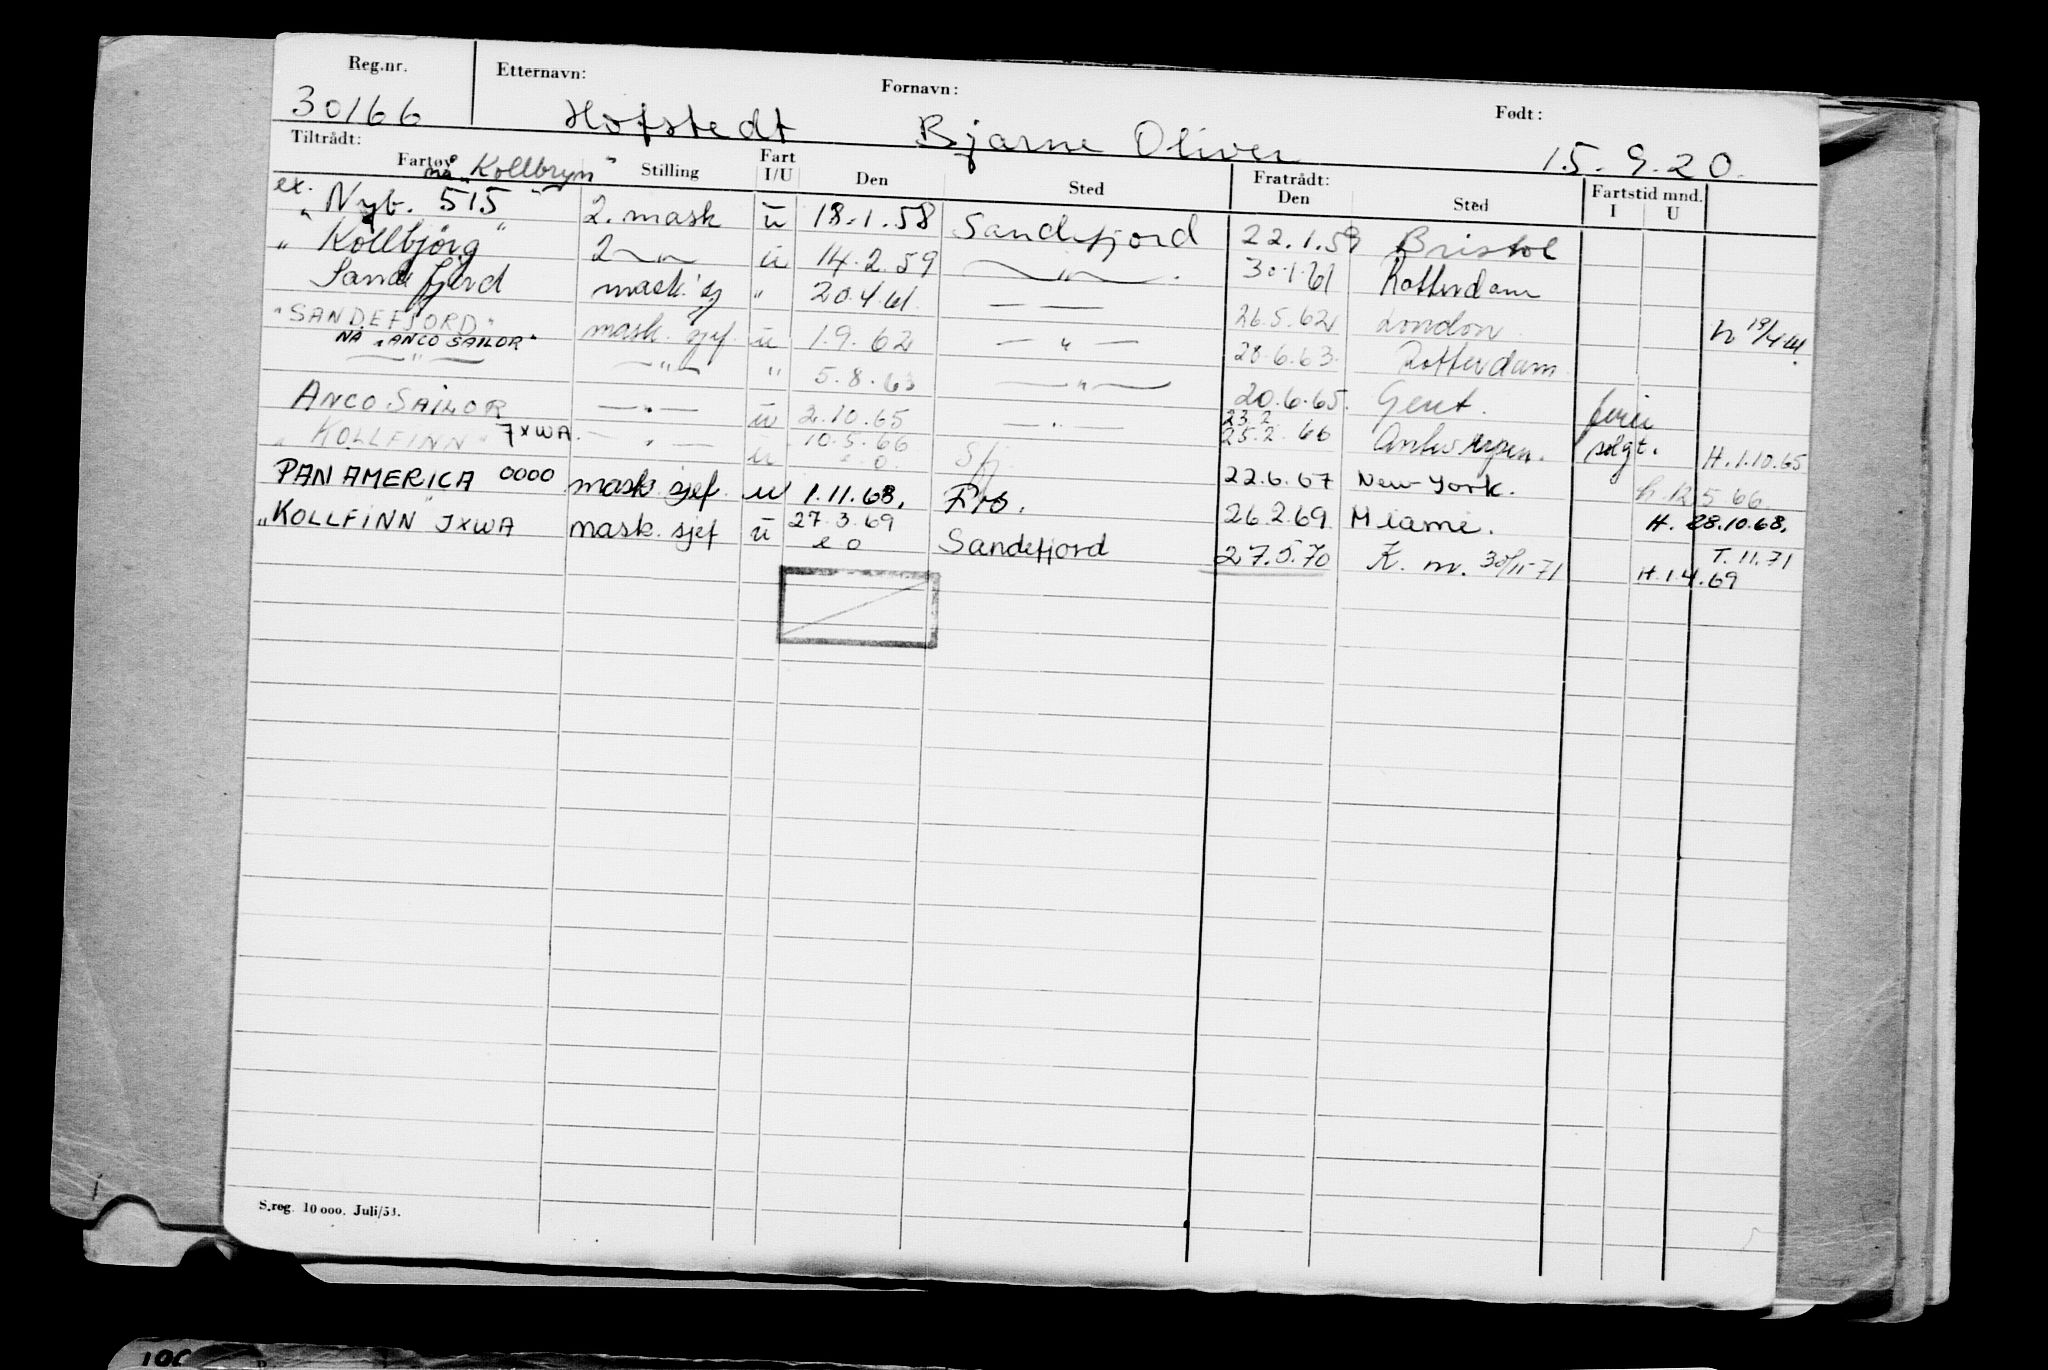 Reg.nr. Etternavn: Fornavn: Født:
30166 Hofstedt Bjarne Oliver 15.9.20.
Tiltrådt: Fratrådt:
Fartøy Stilling Fart I/U Den Sted Den Sted Fartstid mnd. I U
nå "Kollbryn"
ex. Nyb. 515 2. mask u 18.1.58 Sandefjord 22.1.59 Bristol
" Kollbjörg " 2 —"— u 14.2.59 —"— 30.1.61 Rotterdam
" Sandefjord mask. sj " 20.4.61 — — 26.5.62 London h 19/4-61
"SANDEFJORD" mask. sjef u 1.9.62 — " — 28.6.63. Rotterdam
NÅ "ANCO SAILOR"
—"— —"— " 5.8.63 —"— 20.6.65. Gent. ferie
ANCO SAILOR —"— u 2.10.65 —"— 23.2 25.2.66 Antwerpen. solgt. H.1.10.65
"KOLLFINN" JXWA. —"— u 10.5.66 Sfj. 22.6.67 New-York. h.12.5.66
PAN AMERICA 0000 mask. sjef. u 1.11.68. 26.2.69 Miami. H. 28.10.68.
"KOLLFINN" JXWA mask. sjef u 27.3.69 Sandefjord 27.5.70 K. m. 30/11-71 T. 11.71
e o H.1.4.69
S.reg. 10 000. Juli/53.